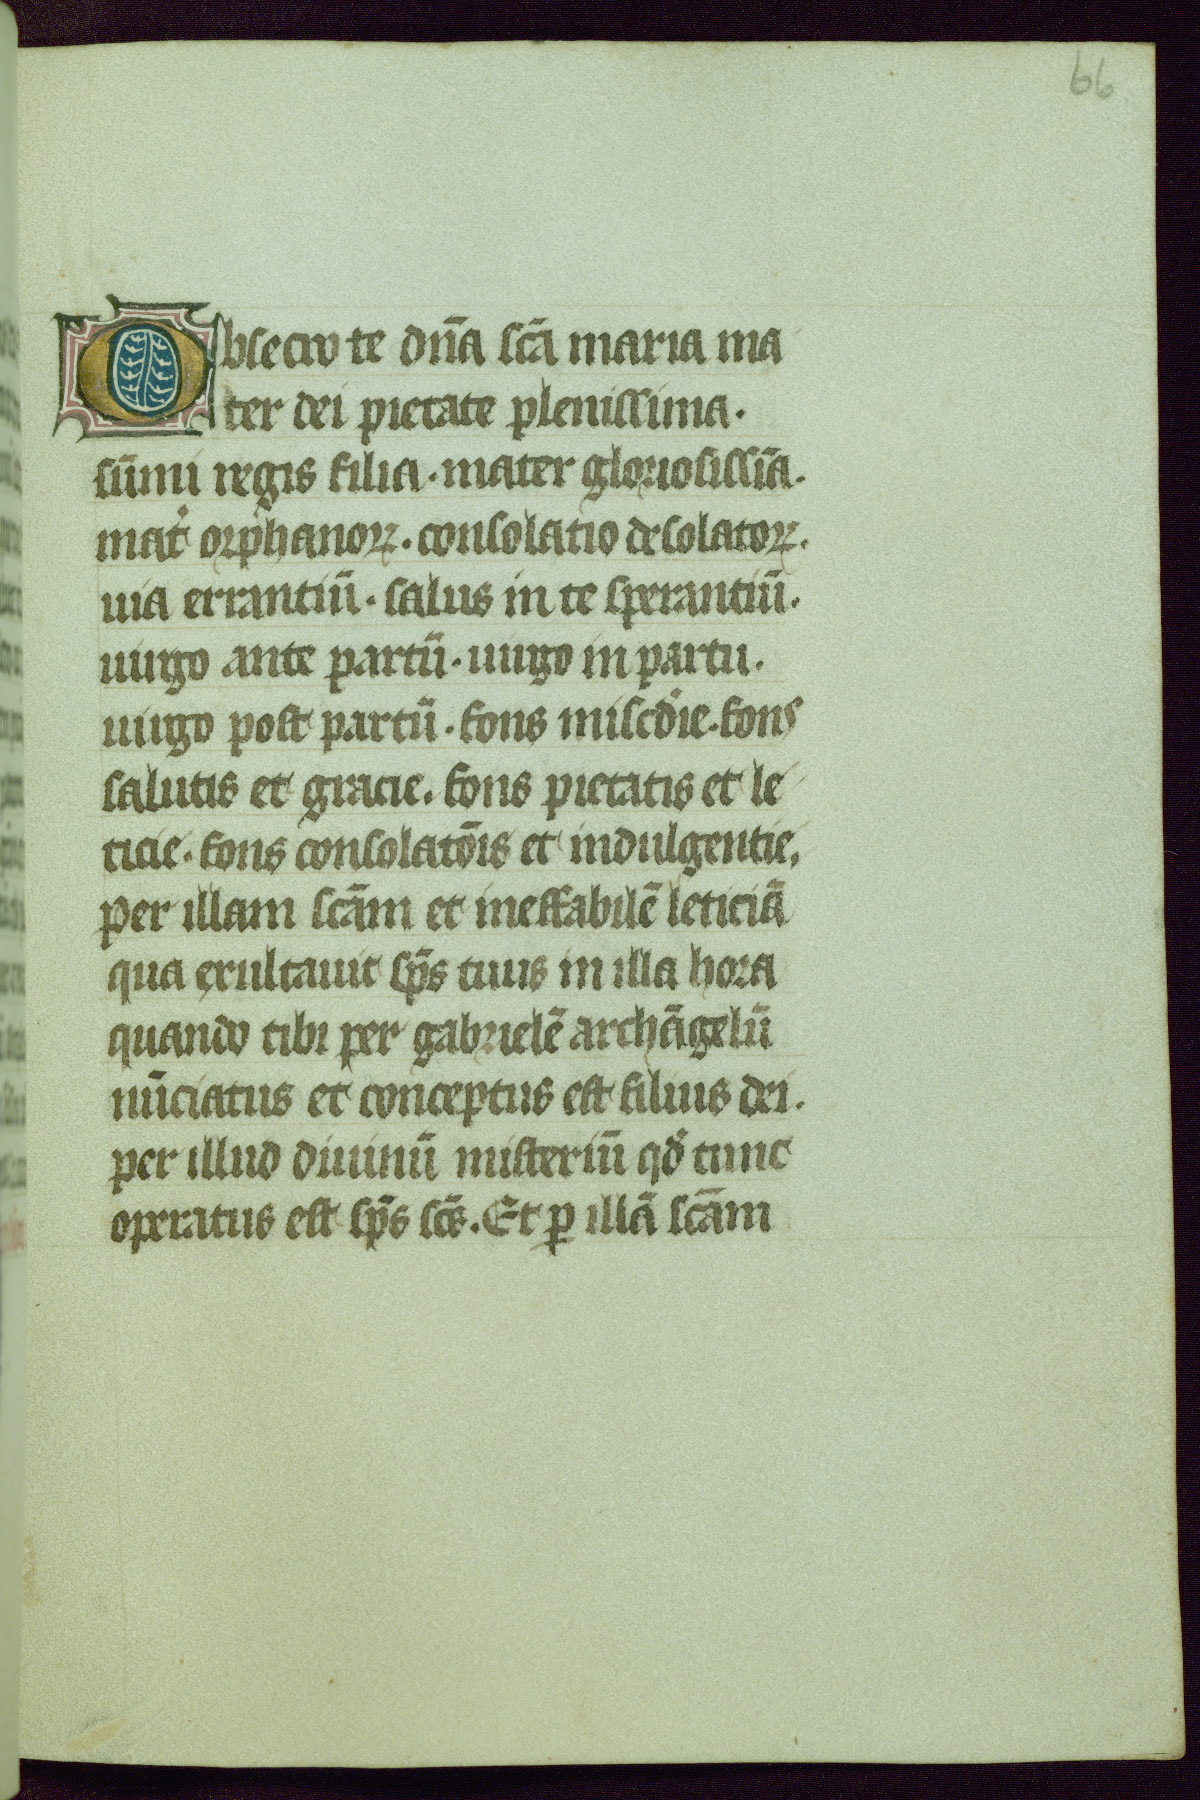 66
Obsecro te dn̄a sc̄a maria ma
ter dei pietate plenissima.
sūmi regis filia. mater gloriosissīa.
mat͛ orphanoꝝ. consolatio desolatoꝝ.
uia errantiū. salus in te sperantiū.
uirgo ante partū. uirgo in partu.
uirgo post partū. fons misc͛die. fons
salutis et gracie. fons pietatis et le
ticie. fons consolatōis et indulgentie.
per illam sc̄am et ineffabilē leticiā
qua exultauit sp̄s tuus in illa hora
quando tibi per gabrielē archāgelū
nūciatus et conceptus est filius dei.
per illud diuinū misteriū qd̄ tunc
operatus est sp̄s sc̄s. Et ꝑ illā sc̄am